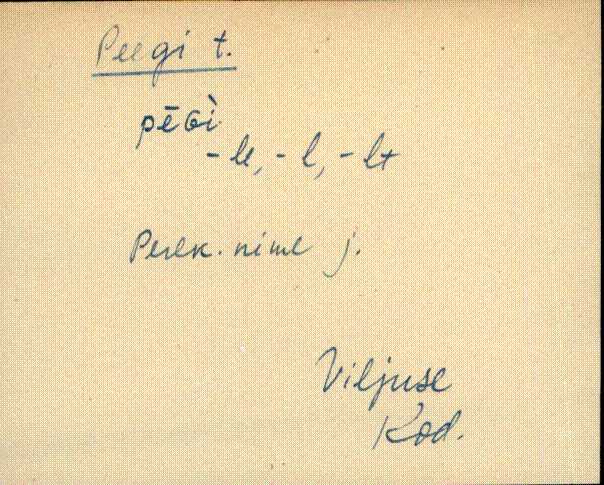 Peegi t.
pēɢì
-le, -l, -lt
Perek. nime j.
Viljuse
Kod.